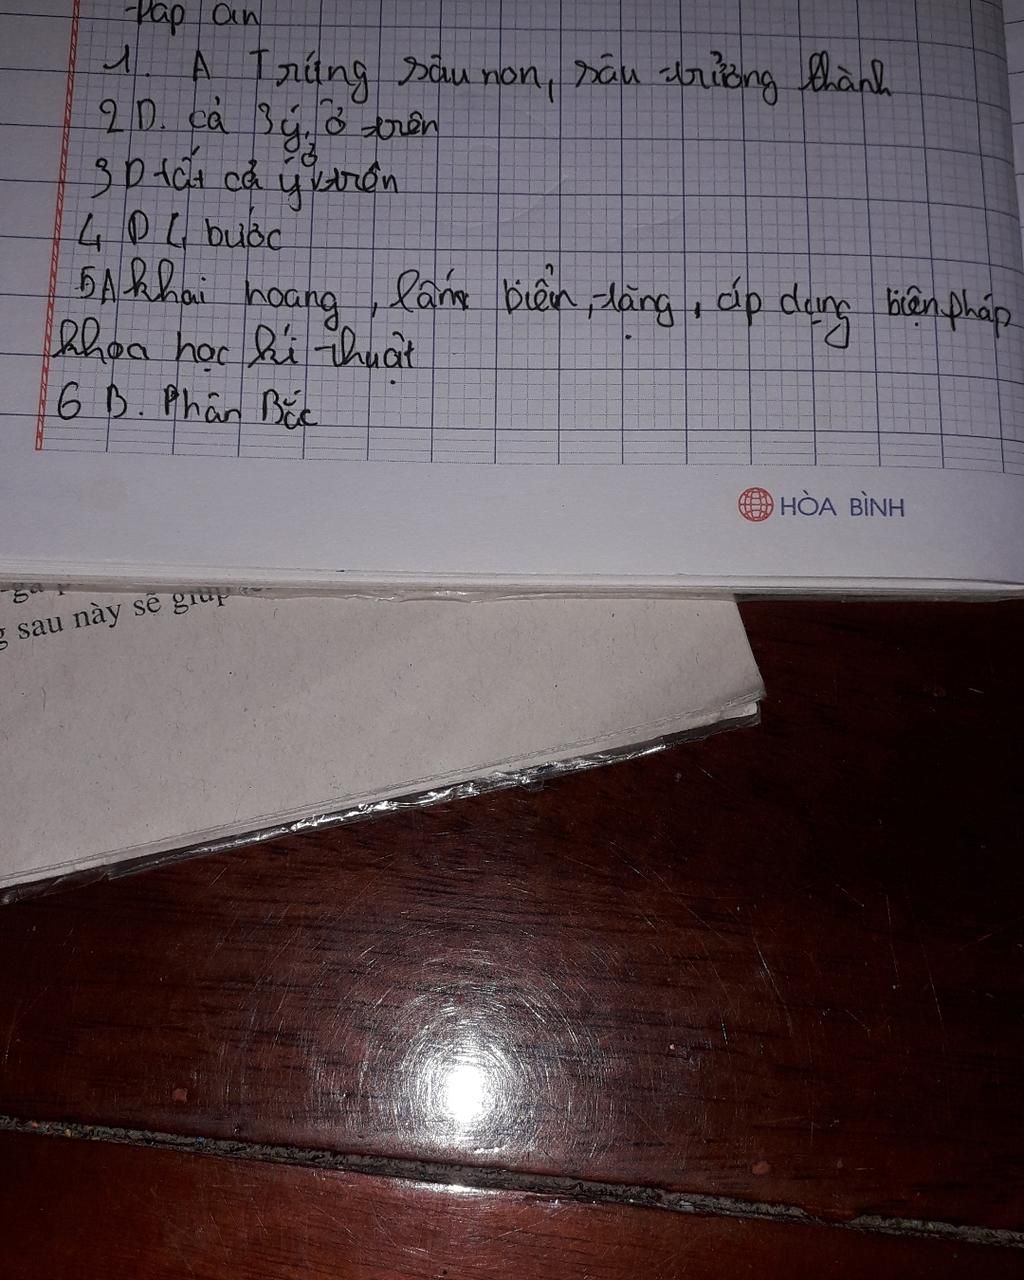 đáp án
1. A Trứng sâu non, sâu trưởng thành
2 D. cả 3 ý ở trên
3 D tất cả ý ở trên
4 D 4 bước
5 A khai hoang, lấn biển, tăng, áp dụng biện pháp
khoa học kĩ thuật
6 B. Phân Bắc
HÒA BÌNH
sau này sẽ giúp